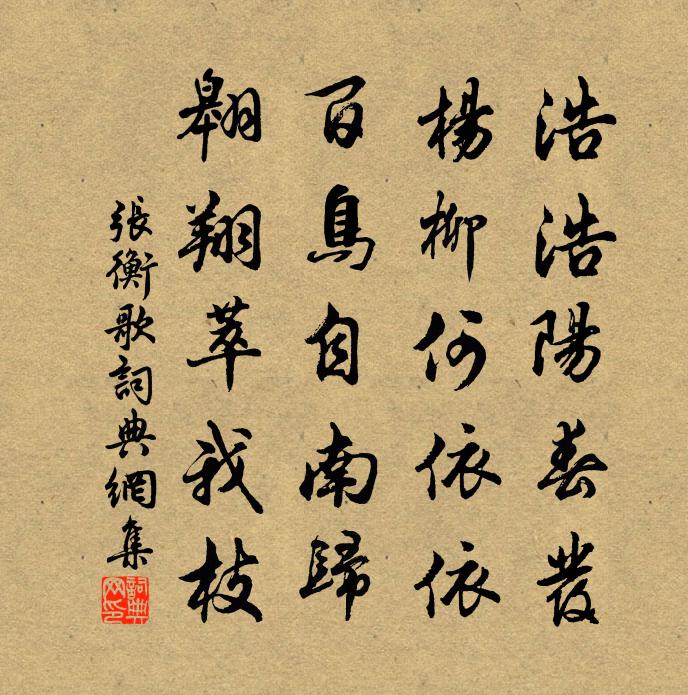 浩浩陽春發
楊柳何依依
百鳥自南歸
翱翔萃我枝
張衡歌詞典網集
詞典網印